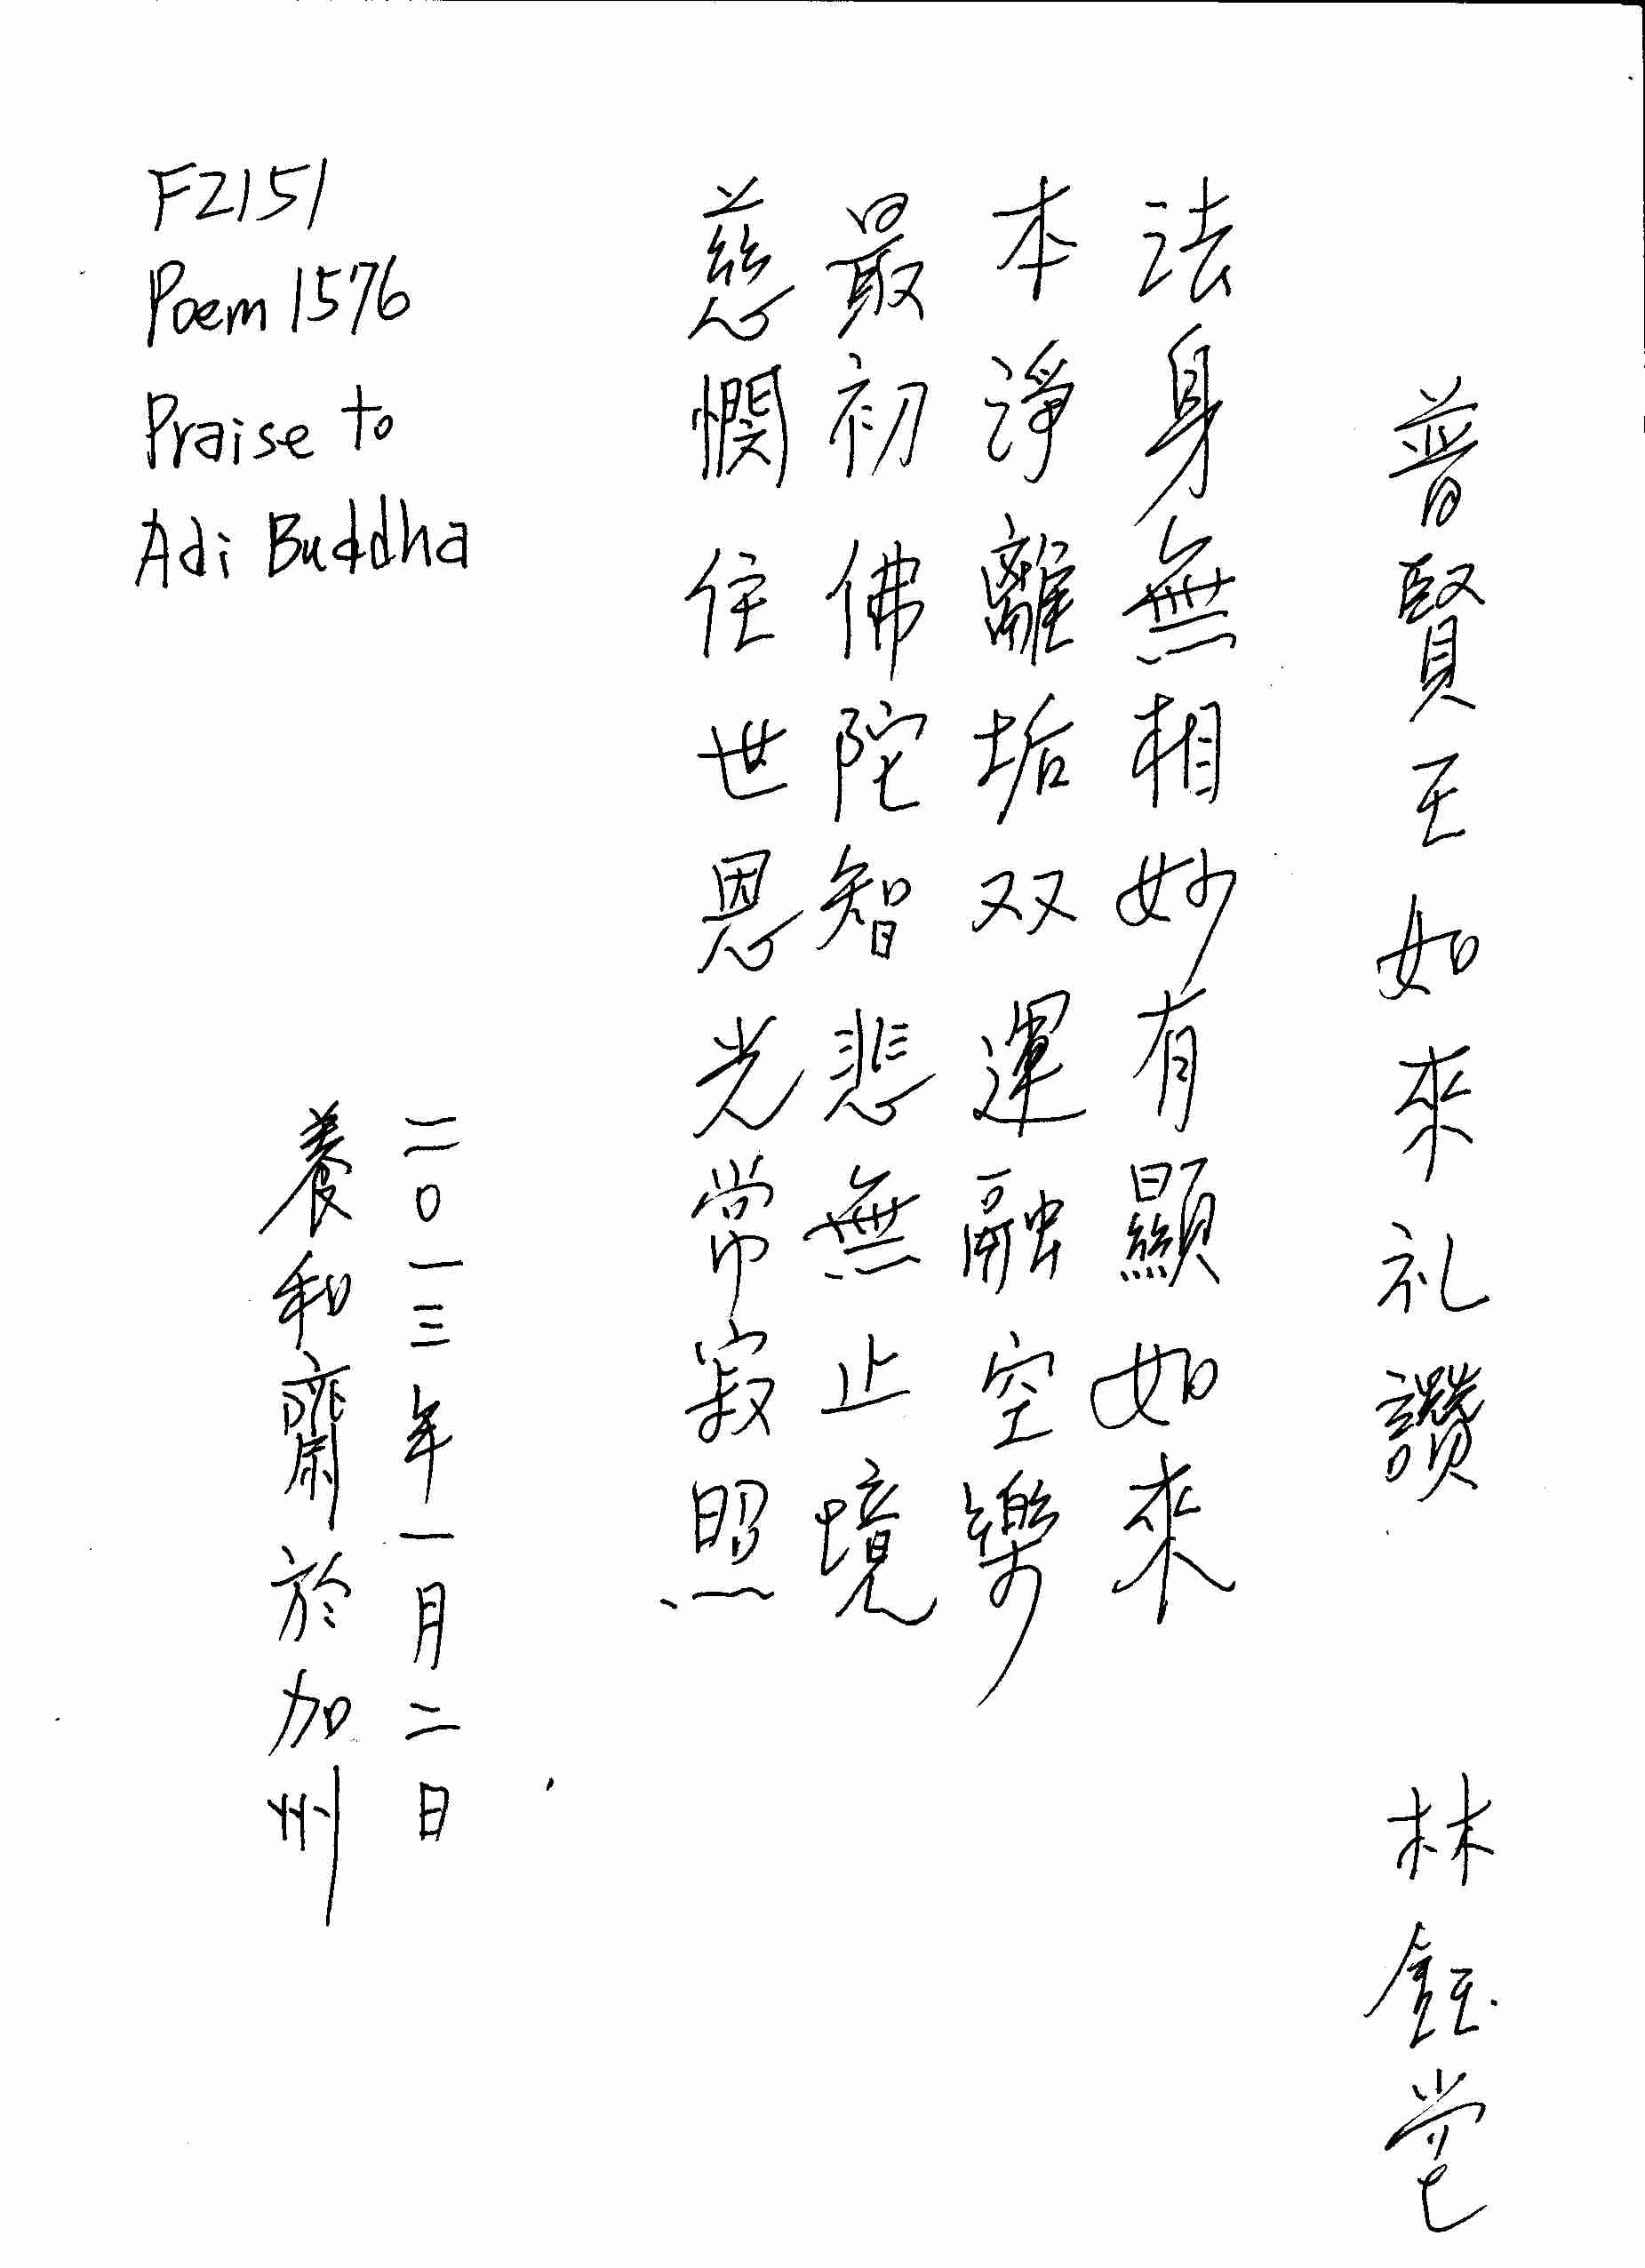 普賢王如來礼讚 林鈺堂
法身無相妙有顯如來
本淨離垢双運融空樂
最初佛陀智悲無止境
慈憫住世恩光常寂照
二〇一三年一月二日
養和齋於加州
F2151
Poem 1576
Praise to
Adi Buddha